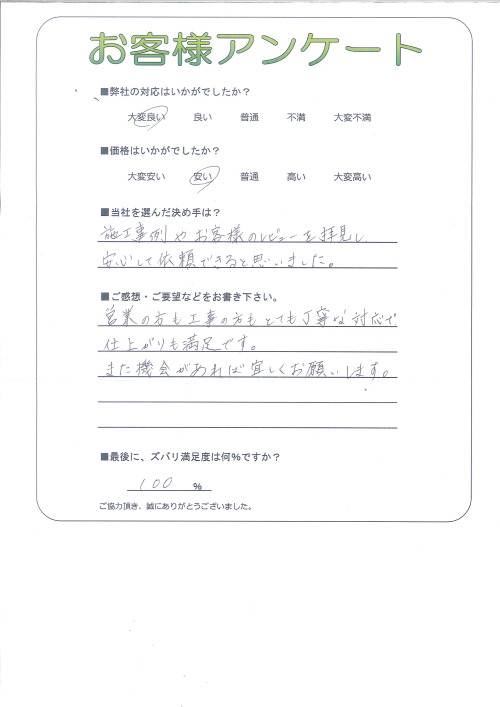 お客様アンケート
■弊社の対応はいかがでしたか?
大変良い 良い 普通 不満 大変不満
■価格はいかがでしたか?
大変安い 安い 普通 高い 大変高い
■当社を選んだ決め手は?
施工事例やお客様のレビューを拝見し、
安心して依頼できると思いました。
■ご感想・ご要望などをお書き下さい。
営業の方も工事の方もとても丁寧な対応で
仕上がりも満足です。
また機会があれば宜しくお願いします。
■最後に、ズバリ満足度は何%ですか?
100 %
ご協力頂き、誠にありがとうございました。